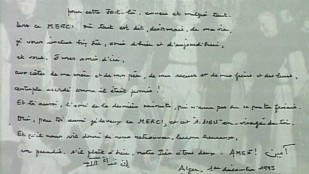 pour cette joie-là, envers et malgré tout.
Dans ce MERCI où tout est dit, désormais, de ma vie,
je vous inclus bien sûr, amis d'hier et d'aujourd'hui,
et vous, ô mes amis d'ici,
aux côtés de ma mère et de mon père, de mes sœurs et de mes frères et des leurs,
centuple accordé comme il était promis !
Et toi aussi, l'ami de la dernière minute, qui n'auras pas su ce que tu faisais.
Oui, pour toi aussi je le veux ce MERCI, et cet A-DIEU en-visagé de toi.
Et qu'il nous soit donné de nous retrouver, larrons heureux,
en paradis, s'il plaît à Dieu, notre Père à tous deux. AMEN !
Alger, 1er décembre 1993